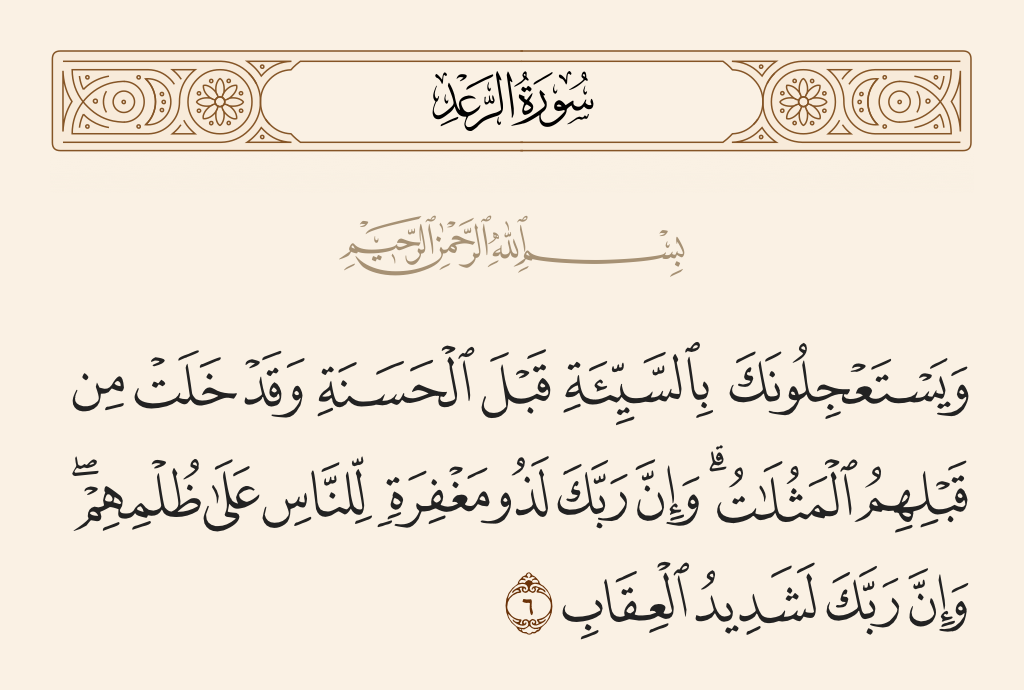 سُورَةُ الرَّعْدِ
بِسْمِ ٱللَّهِ ٱلرَّحْمَٰنِ ٱلرَّحِيمِ
وَيَسْتَعْجِلُونَكَ بِٱلسَّيِّئَةِ قَبْلَ ٱلْحَسَنَةِ وَقَدْ خَلَتْ مِن
قَبْلِهِمُ ٱلْمَثُلَٰتُ ۗ وَإِنَّ رَبَّكَ لَذُو مَغْفِرَةٍ لِّلنَّاسِ عَلَىٰ ظُلْمِهِمْ ۖ
وَإِنَّ رَبَّكَ لَشَدِيدُ ٱلْعِقَابِ ٦